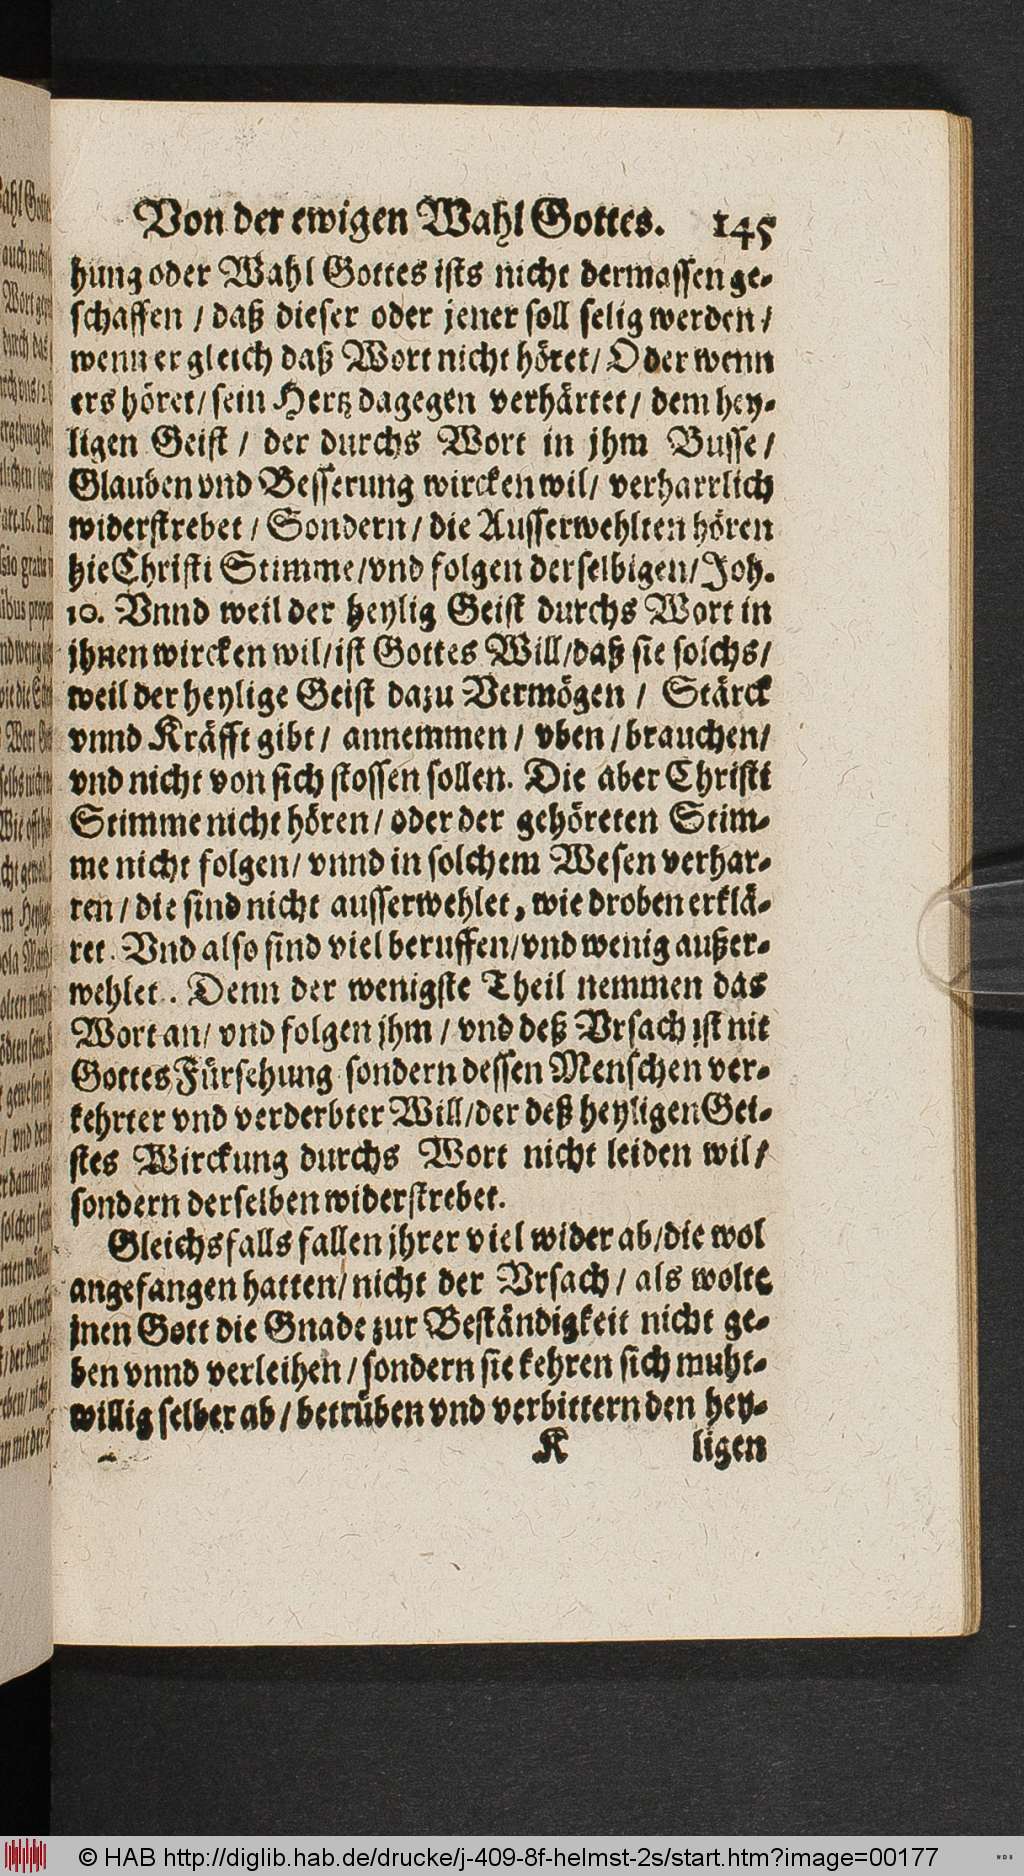 Von der ewigen Wahl Gottes. 145
hung oder Wahl Gottes ists nicht dermassen ge-
schaffen / daß dieser oder jener soll selig werden /
wenn er gleich daß Wort nicht höret / Oder wenn
ers höret / sein Hertz dagegen verhärtet / dem hey-
ligen Geist / der durchs Wort in jhm Busse /
Glauben vnd Besserung wircken wil / verharrlich
widerstrebet / Sondern / die Ausserwehlten hören
hie Christi Stimme / vnd folgen derselbigen / Joh.
10. Vnnd weil der heylig Geist durchs Wort in
jhnen wircken wil / ist Gottes Will / daß sie solchs /
weil der heylige Geist dazu Vermögen / Stärck
vnnd Kräfft gibt / annemmen / vben / brauchen /
vnd nicht von sich stossen sollen. Die aber Christi
Stimme nicht hören / oder der gehöreten Stim-
me nicht folgen / vnnd in solchem Wesen verhar-
ren / die sind nicht ausserwehlet, wie droben erklä-
ret. Vnd also sind viel beruffen / vnd wenig außer-
wehlet. Denn der wenigste Theil nemmen das
Wort an / vnd folgen jhm / vnd deß Vrsach ist nit
Gottes Fürsehung sondern dessen Menschen ver-
kehrter vnd verderbter Will / der deß heyligen Gei-
stes Wirckung durchs Wort nicht leiden wil /
sondern derselben widerstrebet.
Gleichsfalls fallen jhrer viel wider ab / die wol
angefangen hatten / nicht der Vrsach / als wolte
jnen Gott die Gnade zur Beständigkeit nicht ge-
ben vnnd verleihen / sondern sie kehren sich muht-
willig selber ab / betrüben vnd verbittern den hey-
K ligen
© HAB http://diglib.hab.de/drucke/j-409-8f-helmst-2s/start.htm?image=00177